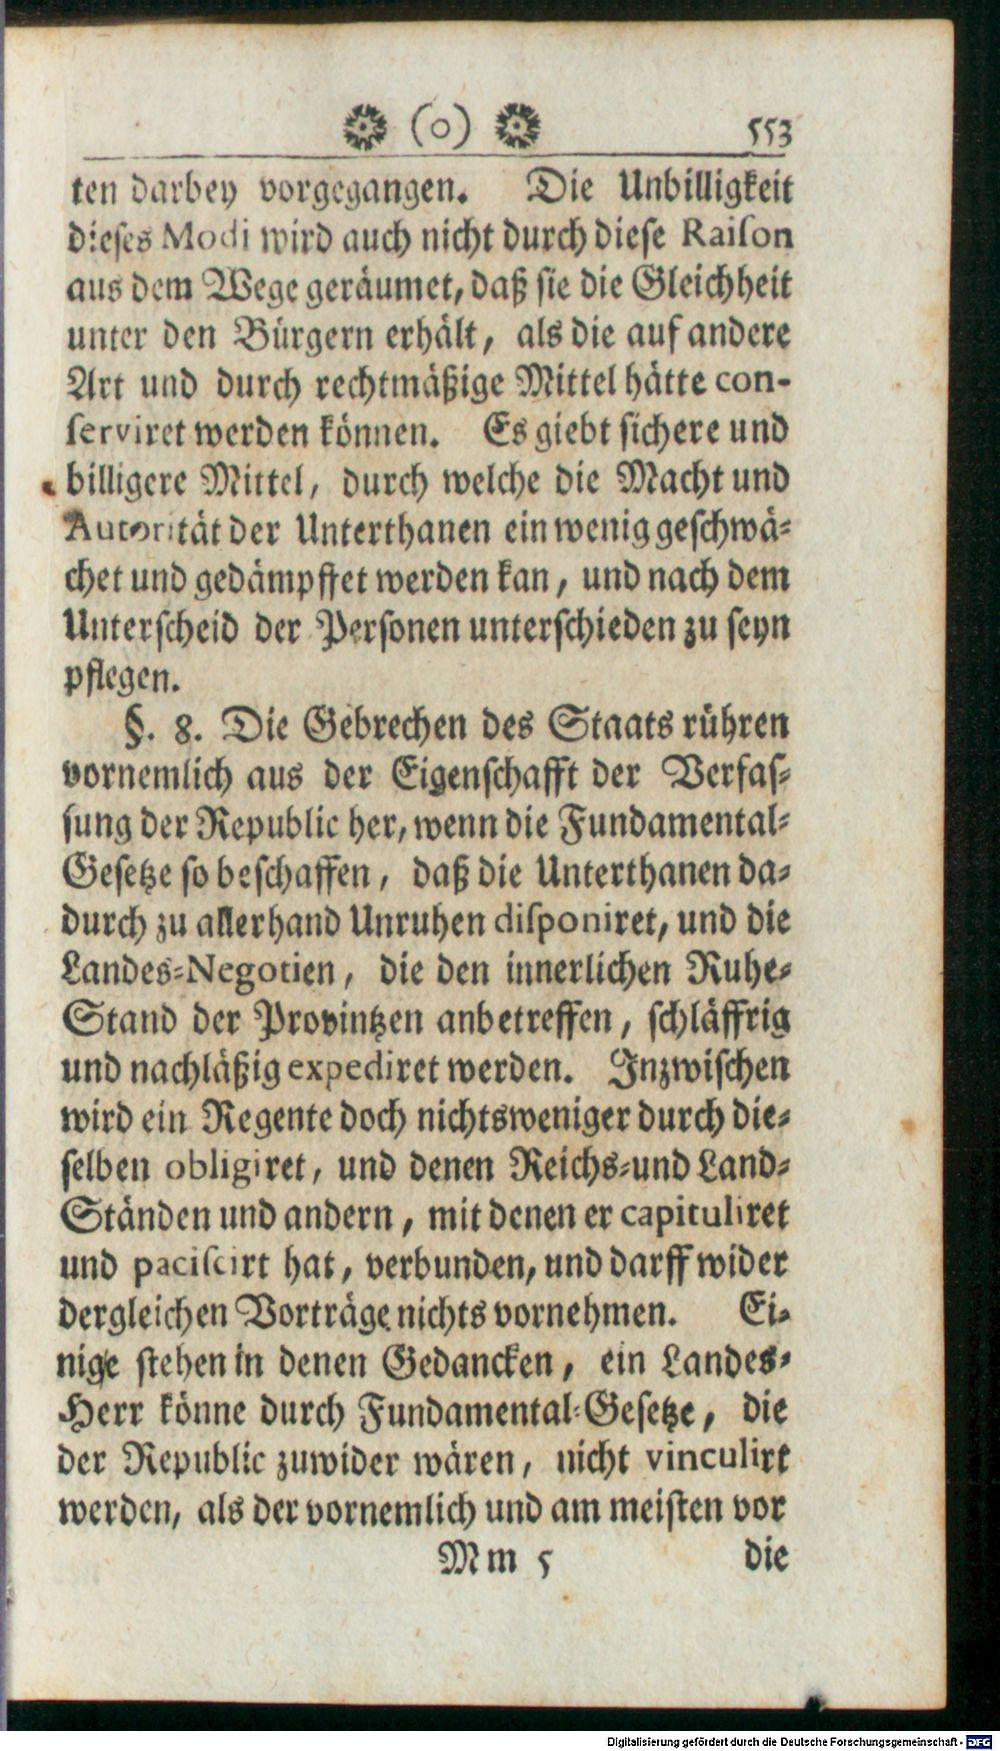 (o) 553
ten darbey vorgegangen. Die Unbilligkeit
dieses Modi wird auch nicht durch diese Raiſon
aus dem Wege geräumet, daß sie die Gleichheit
unter den Bürgern erhält, als die auf andere
Art und durch rechtmäßige Mittel hätte con-
ſerviret werden können. Es giebt sichere und
billigere Mittel, durch welche die Macht und
Autorität der Unterthanen ein wenig geschwä-
chet und gedämpffet werden kan, und nach dem
Unterscheid der Personen unterschieden zu seyn
pflegen.
§. 8. Die Gebrechen des Staats rühren
vornemlich aus der Eigenschafft der Verfas-
sung der Republic her, wenn die Fundamental-
Gesetze so beschaffen, daß die Unterthanen da-
durch zu allerhand Unruhen diſponiret, und die
Landes-Negotien, die den innerlichen Ruhe-
Stand der Provintzen anbetreffen, schläffrig
und nachläßig expediret werden. Inzwischen
wird ein Regente doch nichtsweniger durch die-
selben obligiret, und denen Reichs-und Land-
Ständen und andern, mit denen er capituliret
und paciſcirt hat, verbunden, und darff wider
dergleichen Vorträge nichts vornehmen. Ei-
nige stehen in denen Gedancken, ein Landes-
Herr könne durch Fundamental-Gesetze, die
der Republic zuwider wären, nicht vinculirt
werden, als der vornemlich und am meisten vor
Mm 5 die
Digitalisierung gefördert durch die Deutsche Forschungsgemeinschaft - DFG